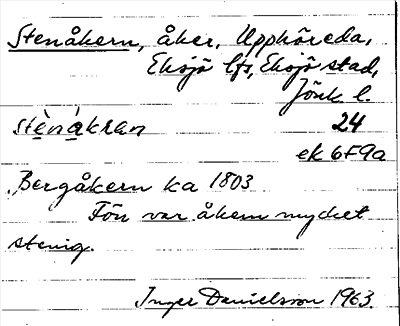 Stenåkern, åker, Upphöreda,
Eksjö lfs, Eksjö stad,
Jönk l.
stènákran 24
ek 6F9a
Bergåkern ka 1803
Förr var åkern mycket
stenig.
Inger Danielsson 1963.